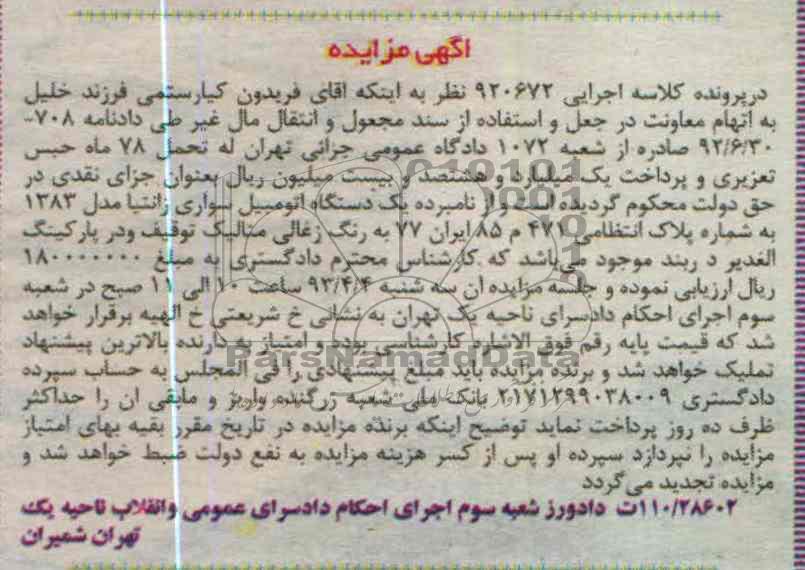 اگهی مزایده
درپرونده کلاسه اجرایی ۹۲۰۶۷۲ نظر به اینکه اقای فریدون کیارستمی فرزند خلیل
به اتهام معاونت در جعل و استفاده از سند مجعول و انتقال مال غیر طی دادنامه ۷۰۸-
۹۲/۶/۳۰ صادره از شعبه ۱۰۷۲ دادگاه عمومی جزائی تهران له تحمل ۷۸ ماه حبس
تعزیری و پرداخت یک میلیارد و هشتصد و بیست میلیون ریال بعنوان جزای نقدی در
حق دولت محکوم گردیده است و از نامبرده یک دستگاه اتومبیل سواری زانتیا مدل ۱۳۸۳
به شماره پلاک انتظامی ۴۷۱ م ۸۵ ایران ۷۷ به رنگ زغالی متالیک توقیف ودر پارکینگ
الغدیر د ربند موجود می‌باشد که کارشناس محترم دادگستری به مبلغ ۱۸۰۰۰۰۰۰۰
ریال ارزیابی نموده و جلسه مزایده ان سه شنبه ۹۳/۴/۴ ساعت ۱۰ الی ۱۱ صبح در شعبه
سوم اجرای احکام دادسرای ناحیه یک تهران به نشانی خ شریعتی خ الهیه برقرار خواهد
شد که قیمت پایه رقم فوق الاشاره کارشناسی بوده و امتیاز به دارنده بالاترین پیشنهاد
تملیک خواهد شد و برنده مزایده باید مبلغ پیشنهادی را فی المجلس به حساب سپرده
دادگستری ۲۱۷۱۲۹۹۰۳۸۰۰۹ بانک ملی شعبه زرگنده واریز و مابقی ان را حداکثر
ظرف ده روز پرداخت نماید توضیح اینکه برنده مزایده در تاریخ مقرر بقیه بهای امتیاز
مزایده را نپردازد سپرده او پس از کسر هزینه مزایده به نفع دولت ضبط خواهد شد و
مزایده تجدید می‌گردد
۱۱۰/۲۸۶۰۲ت دادورز شعبه سوم اجرای احکام دادسرای عمومی وانقلاب ناحیه یک
تهران شمیران
ParsNamadData